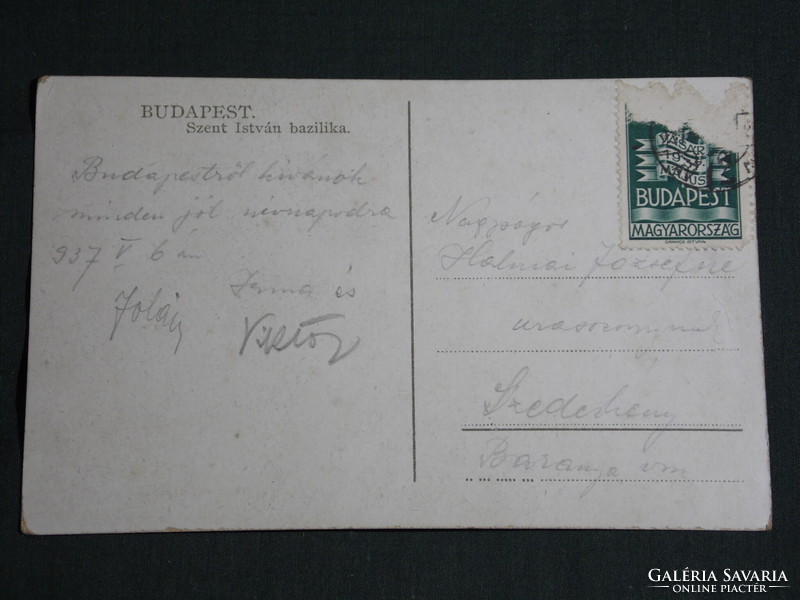 BUDAPEST.
Szent István bazilika.
Budapestről kívánok
minden jót névnapodra
937 V 6 án
Irma és
Jolán
Viktor
VÁSÁR
1937.
MÁJUS
BUDAPEST
MAGYARORSZÁG
Nagyságos
Halmai Józsefné
Szederkény
Baranya vm
GALÉRIA SAVARIA
ONLINE PIACTÉR